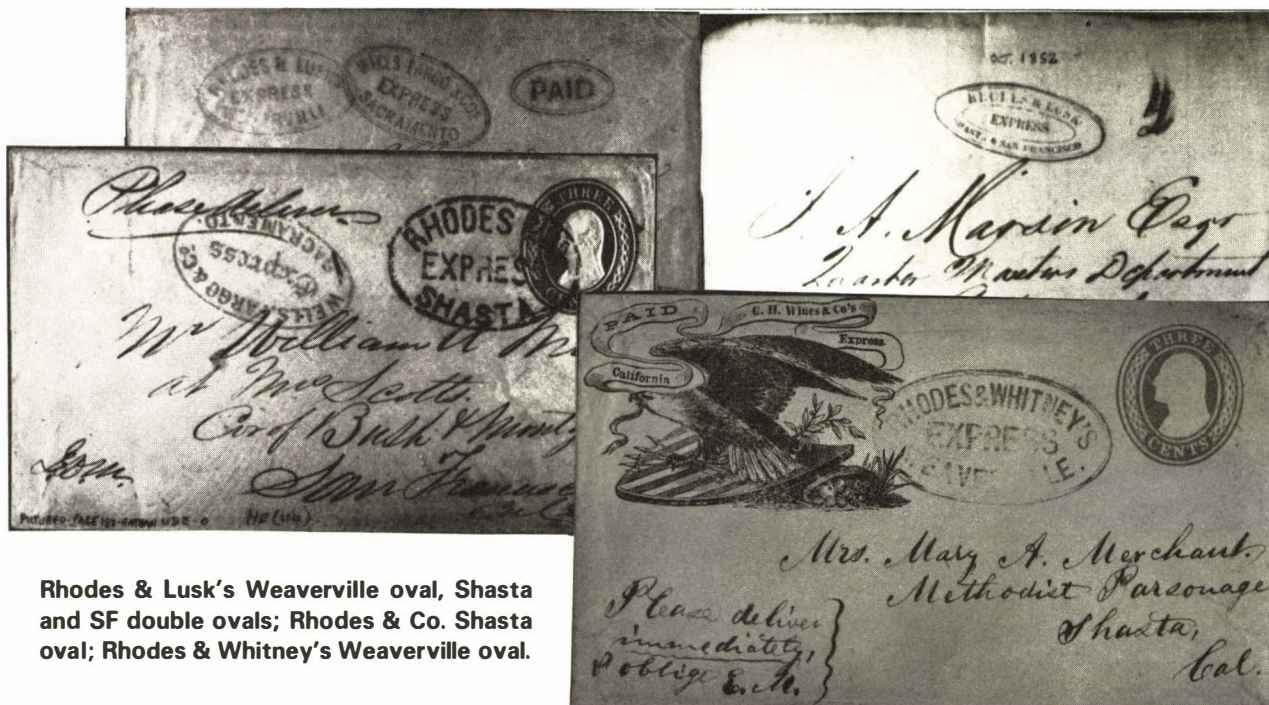 RHODES & LUSK'S
EXPRESS
WELLS FARGO & CO'S
EXPRESS
SACRAMENTO
PAID
OCT. 1852
RHODES & LUSK
EXPRESS
SHASTA & SAN FRANCISCO
Esqr
Quarter Masters Department
Please
WELLS, FARGO & CO.
Express
SACRAMENTO.
RHODES
EXPRES
SHASTA
THREE
Mr William
at Mrs Scotts.
Cor of Bush &
San
PAID
G. H. Wines & Co's
Express
California
RHODES & WHITNEY'S
EXPRESS
THREE
CENTS
Mrs. Mary A. Merchant.
Methodist Parsonage
Shasta,
Cal.
Please deliver
immediately,
& oblige E. M.
Rhodes & Lusk's Weaverville oval, Shasta
and SF double ovals; Rhodes & Co. Shasta
oval; Rhodes & Whitney's Weaverville oval.